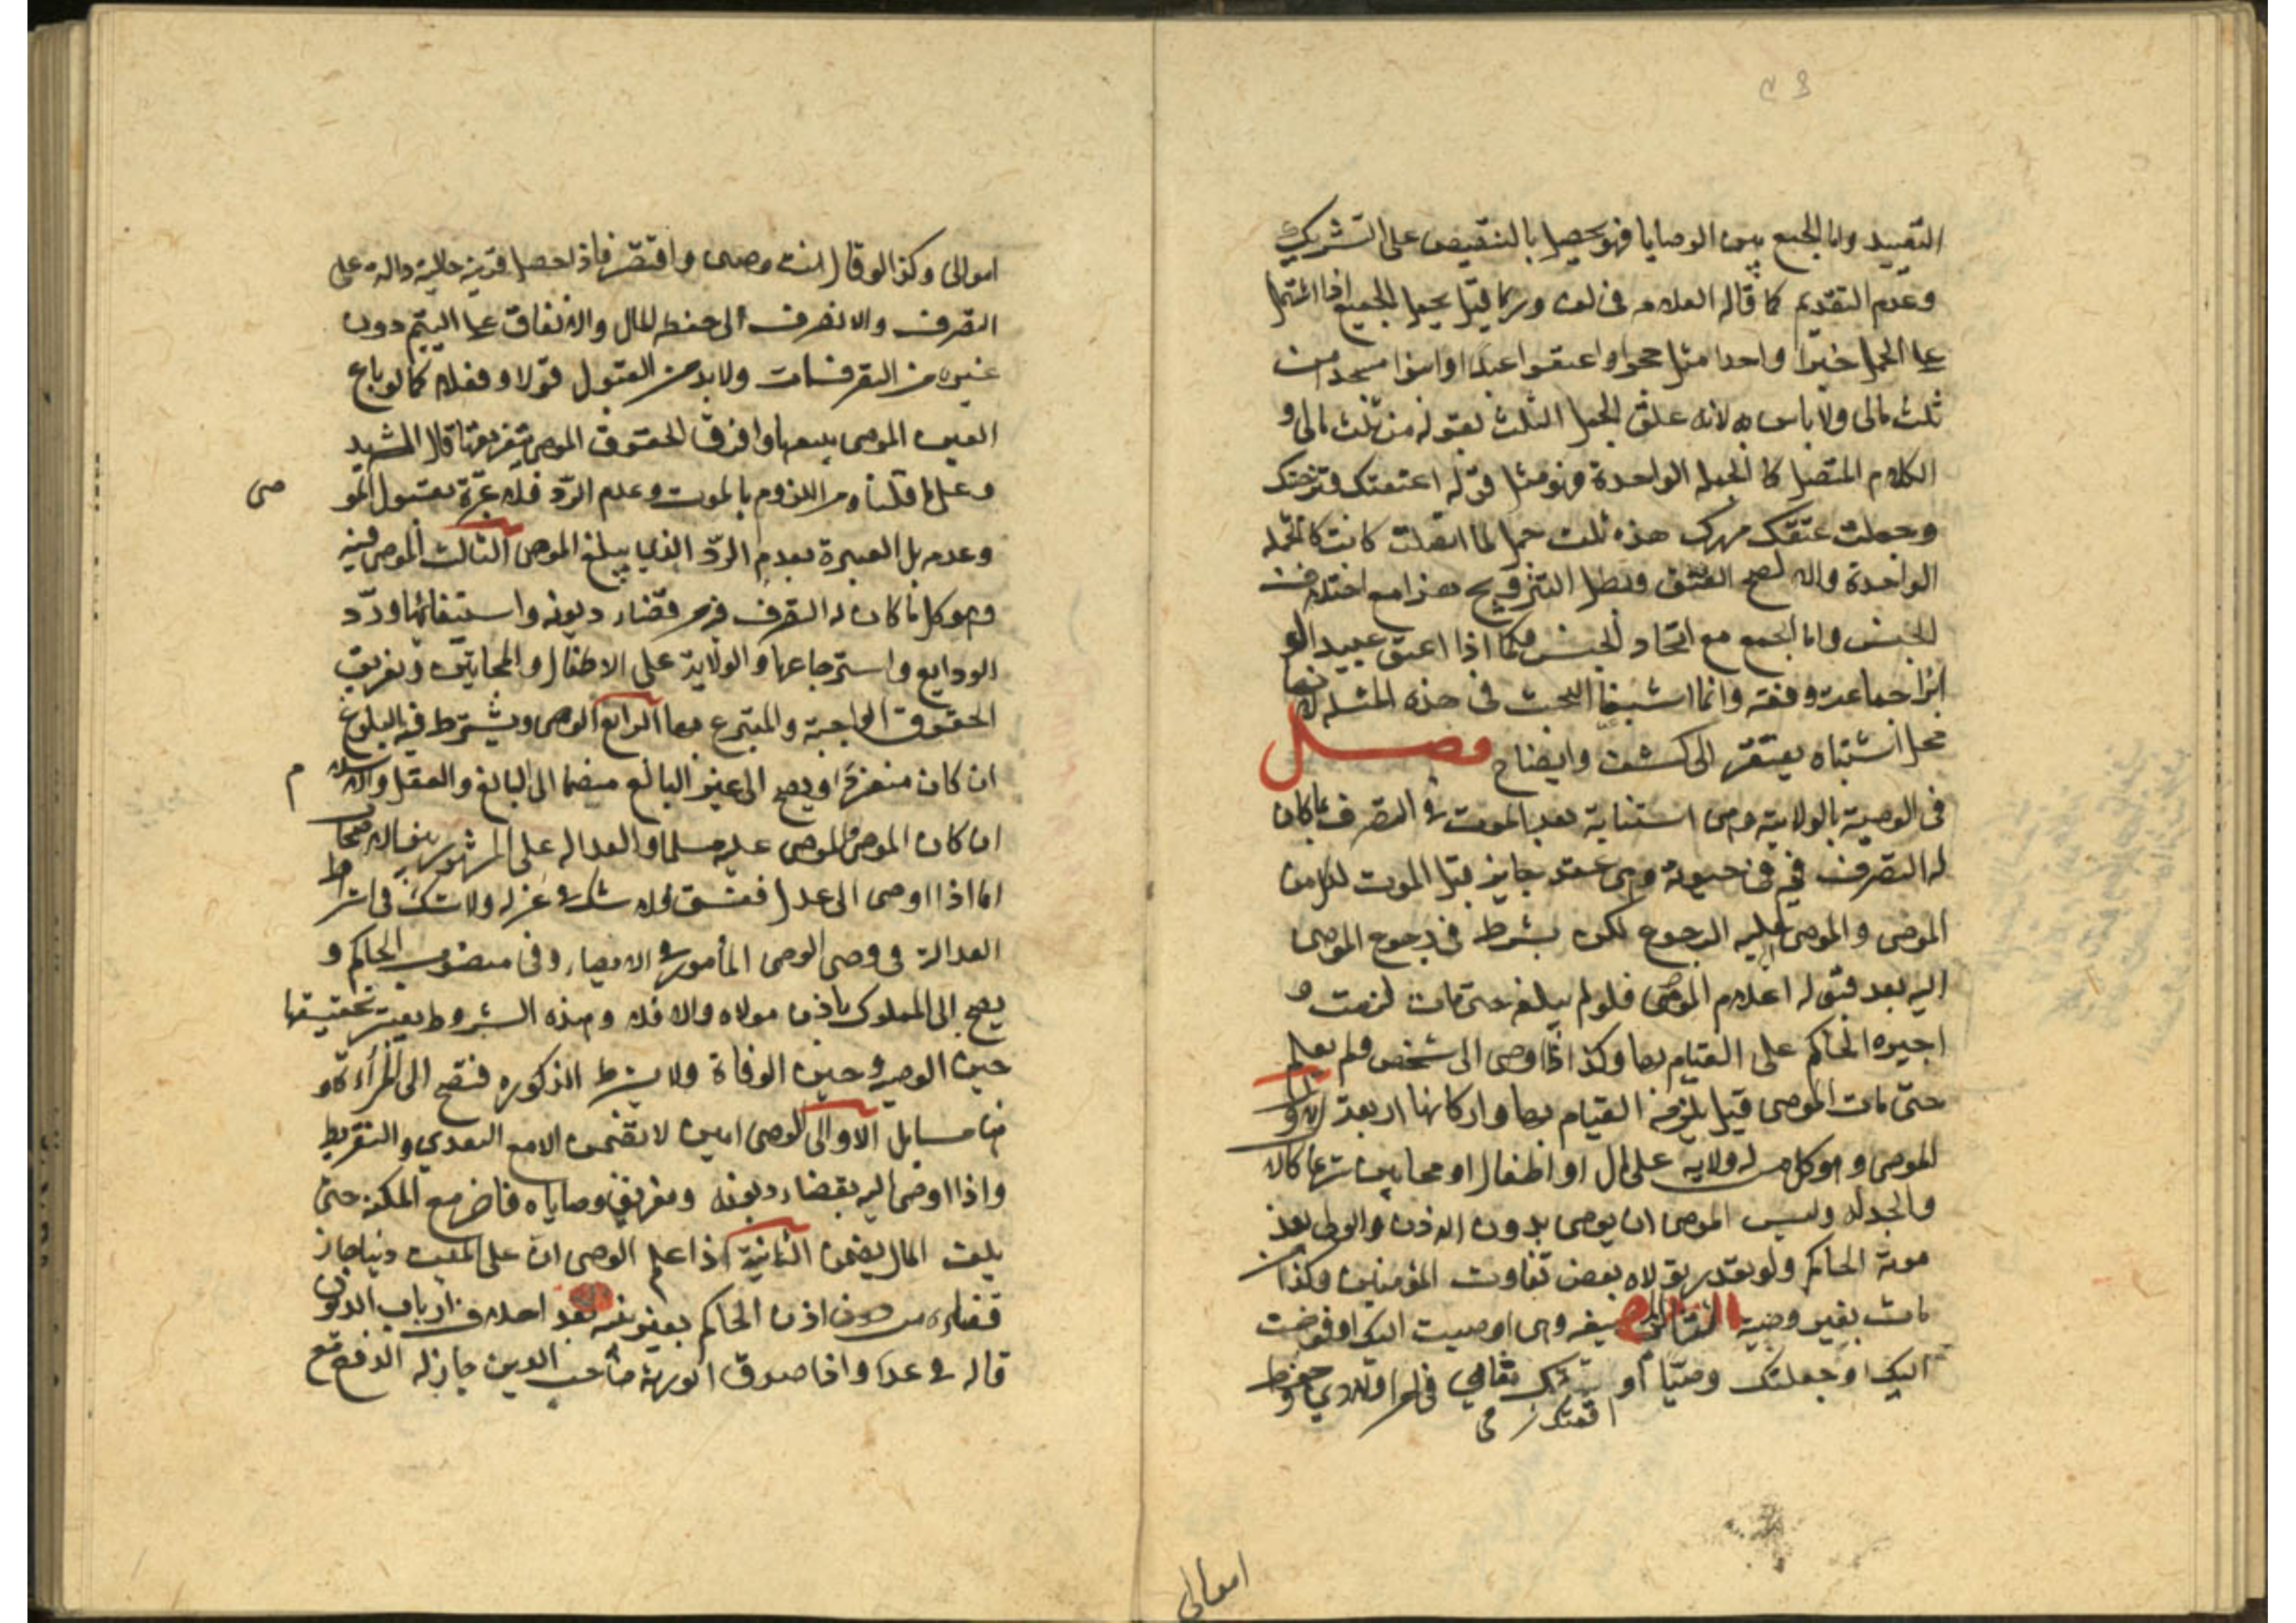 التقييد واما الجمع بين الوصايا فهو يحصل بالتنصيص على التشريك
وعدم التقديم كما قاله العلامه في وربما قيل يحمل الجميع اذا اشتمل
على الجمل خبرا واحدا مثل حجوا واعتقوا عبدا وابنوا مسجدا من
ثلث مالى ولا باس به لانه علق الجمل الثلث بقوله من ثلث مالى و
الكلام المتصل كالجمله الواحدة فهو مثل قوله اعتقتك وتزوجتك
وجعلت عتقك مهرك هذه ثلث جمل لما اتصلت كانت كالجمله
الواحدة والا لصح العتق وبطل التزويج هذا مع اختلاف
الجنس واما الجمع مع اتحاد الجنس فكما اذا اعتق عبيد او
ابرا جماعة دفعه وانما اشبعنا البحث فى هذه المسئله لانها
محل اشتباه يفتقر الى كشف وايضاح فصل
فى الوصية بالولاية وهى استنابة بعد الموت فى التصرف بما كان
له التصرف فيه فى حيوته وهى عقد جايز قبل الموت لكل من
الموصى والموصى اليه الرجوع لكن بشرط فى رجوع الموصى
اليه بعد قبوله اعلام الموصى فلو لم يبلغه حتى مات لزمت و
اجبره الحاكم على القيام بها وكذا اذا اوصى الى شخص ولم يعلم
حتى مات الموصى قيل يلزمه القيام بها واركانها اربعة الاول
الموصى وهو كل من له ولايه على مال او اطفال او مجانين شرعا كالاب
والجد له وليس للموصى ان يوصى بدون الاذن والولى بعد
موته الحاكم ولو تعذر تولاه بعض ثقات المؤمنين وكذا من
مات بغير وصية الثانى الصيغه وهى اوصيت اليك او فوضت
اليك او جعلتك وصيا او اقمتك مقامي في امر اولادي وحفظ
اقمتك
اموالى
اموالى وكذا لو قال انت وصيى واقتصر فاذا حصل قرينة حالية دالة على
التصرف والا انصرف الى حفظ المال والانفاق على اليتيم دون
غيره من التصرفات ولا بد من القبول قولا او فعلا كما لو باع
العين الموصى ببيعها او فرق الحقوق الموصى بتفريقها قال الشهيد
وعلى ما قلناه من اللزوم بالموت وعدم الرد فلا عبرة بقبول المو
صى
وعدمه بل العبرة بعدم الرد الذي يبلغ الموصى الثالث الموصى فيه
وهو كل ما كان له التصرف فيه من قضاء ديونه واستيفائها ورد
الودايع واسترجاعها والولاية على الاطفال والمجانين وتفريق
الحقوق الواجبة والمتبرع بها الرابع الوصى ويشترط فيه البلوغ
ان كان منفردا ويصح الى غير البالغ منضما الى البالغ والعقل والاسلام
ان كان الموصى او الموصى عليه مسلما والعدالة على المشهور بين الاصحاب
اما اذا اوصى الى عدل ففسق فلا شك فى عزله ولا شك فى اشتراط
العدالة فى وصى الوصى المأمور فى الايصاء وفى منصوب الحاكم و
يصح الى المملوك باذن مولاه والا فلا وهذه الشروط يعتبر تحقيقها
حين الوصيه وحين الوفاة ولا يشترط الذكوره فتصح الى المرأة و
هنا مسايل الاولى الوصى امين لا يضمن الا مع التعدي والتفريط
واذا اوصى اليه بقضاء ديونه وتفريق وصاياه فاخر مع المكنة حتى
يلف المال يضمن الثانية اذا علم الوصى ان على الميت دينا جاز
قضاؤه من دون اذن الحاكم بغير بينه بعد احلاف ارباب الديون
قاله فى عدا واذا صدق الورثة صاحب الدين جاز له الدفع مع